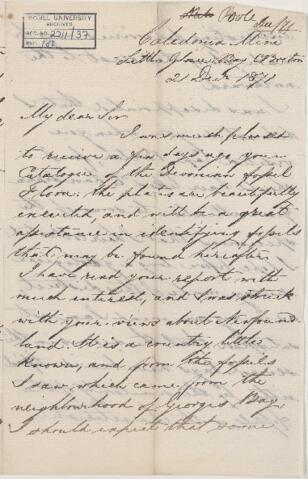 McGILL UNIVERSITY
ARCHIVES
ACC. NO. 2211/37
REF.
Poole Dec/71
Caledonia Mine
Little Glace Bay C Breton
21 Dec 1871
My dear Sir
I was much pleased
to receive a few days ago your
Catalogue of the Devonian fossil
Flora: the plates are beautifully
executed, and will be a great
assistance in identifying fossils
that may be found hereafter.
I have read your report with
much interest, and I was struck
with your views about Newfound-
land. It is a country little
known, and from the fossils
I saw, which came from the
neighbourhood of Georges Bay,
I should expect that some